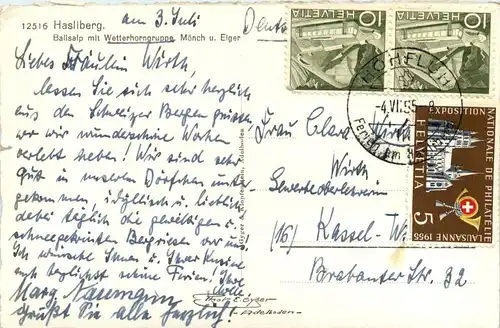 12516 Hasliberg. am 3. Juli
Balisalp mit Wetterhorngruppe, Mönch u. Eiger
Deutschl
Liebes Fräulein Wirth,
lassen Sie sich sehr herzlich
aus den Schweizer Bergen grüssen
wo wir wunderschöne Wochen
verlebt haben! Wir sind sehr
gut in unserem Dörfchen unter-
gekommen, idyllisch u. lieblich
dabei täglich die gewaltigen u.
schneegekrönten Bergriesen vor uns
Ich wünsche Ihnen u. Ihrer
auch schöne Ferien, Ihre
Marg. Nasemann
Grüßt Sie alle herzlich!
Gyger Adelboden
Photo E. Gyger
Adelboden
HELVETIA 10
HELVETIA 10
HOHFLUH
-4.VII.55.-8
EXPOSITION NATIONALE DE PHILATELIE
HELVETIA
LAUSANNE 1955
5
Frau Clara Wirth
Wirth
Gewerbeoberlehrerin
(16) Kassel-W.
Brabanter Str. 32